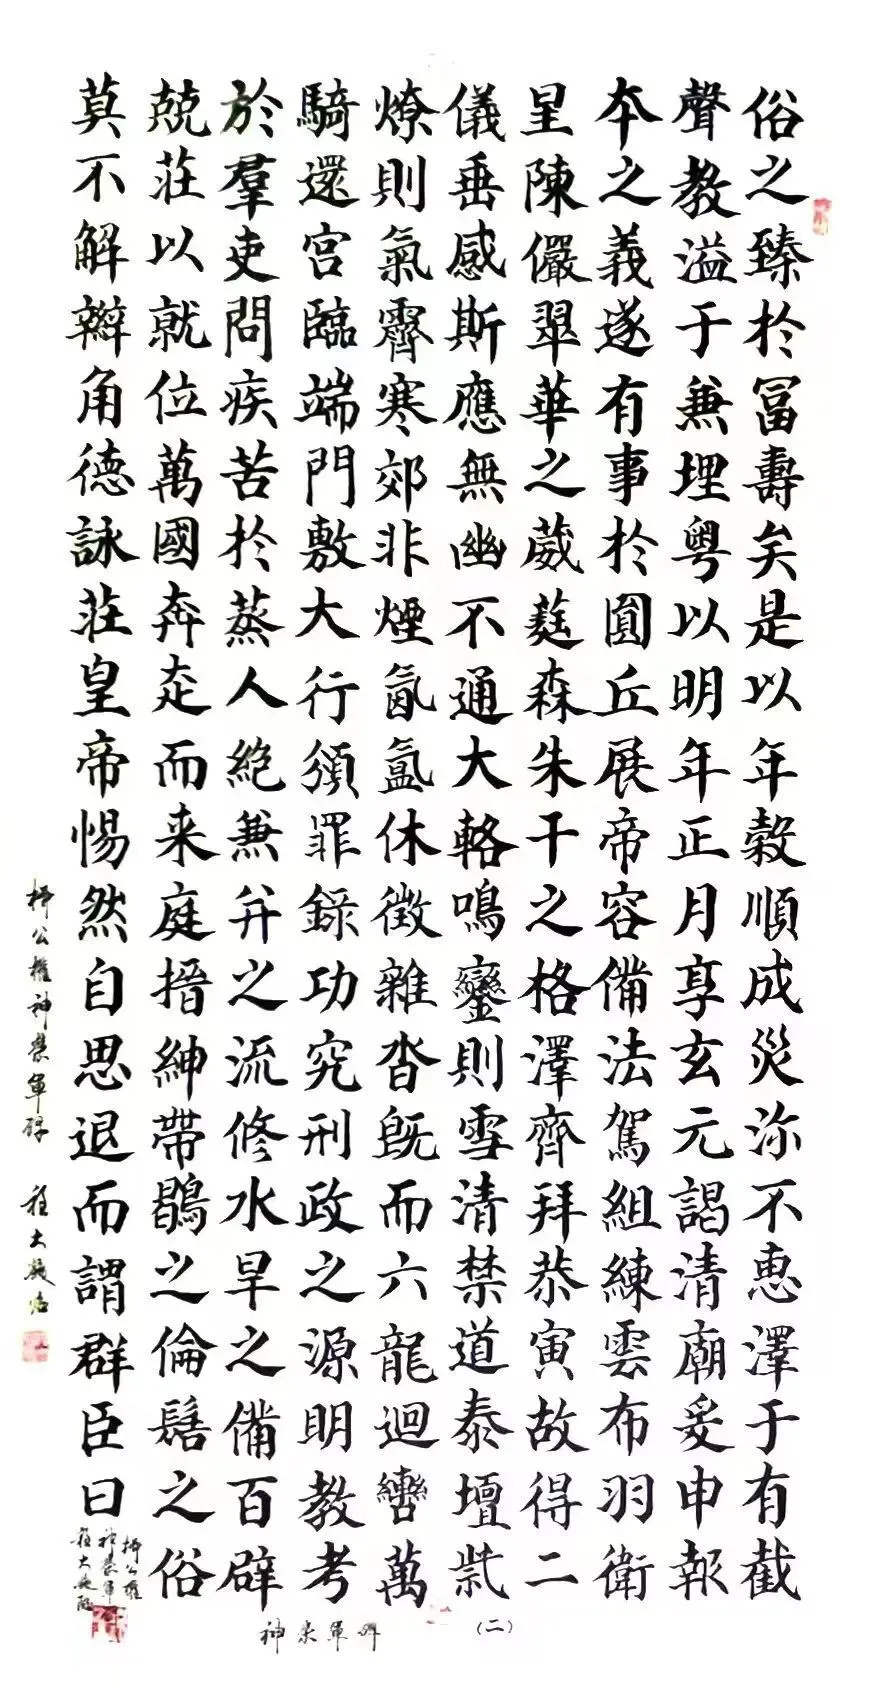 俗之臻於冨壽矣是以年穀順成災沴不惠澤于有截
聲教溢于無埋粤以明年正月享玄元謁清廟爰申報
本之義遂有事於圓丘展帝容備法駕組練雲布羽衛
星陳儼翠華之葳蕤森朱干之格澤齊拜恭寅故得二
儀垂感斯應無幽不通大輅鳴鑾則雪清禁道泰壇祡
燎則氣霽寒郊非煙氤氳休徵雜沓旣而六龍迴轡萬
騎還宫臨端門敷大行頒罪錄功究刑政之源明教考
於羣吏問疾苦於蒸人絶兼并之流修水旱之備百辟
兢莊以就位萬國奔走而来庭搢紳帶鶡之倫髽之俗
莫不解辮角德詠莊皇帝惕然自思退而謂群臣曰
柳公權神策軍碑
柳公權
神策軍
神策軍碑 (二)